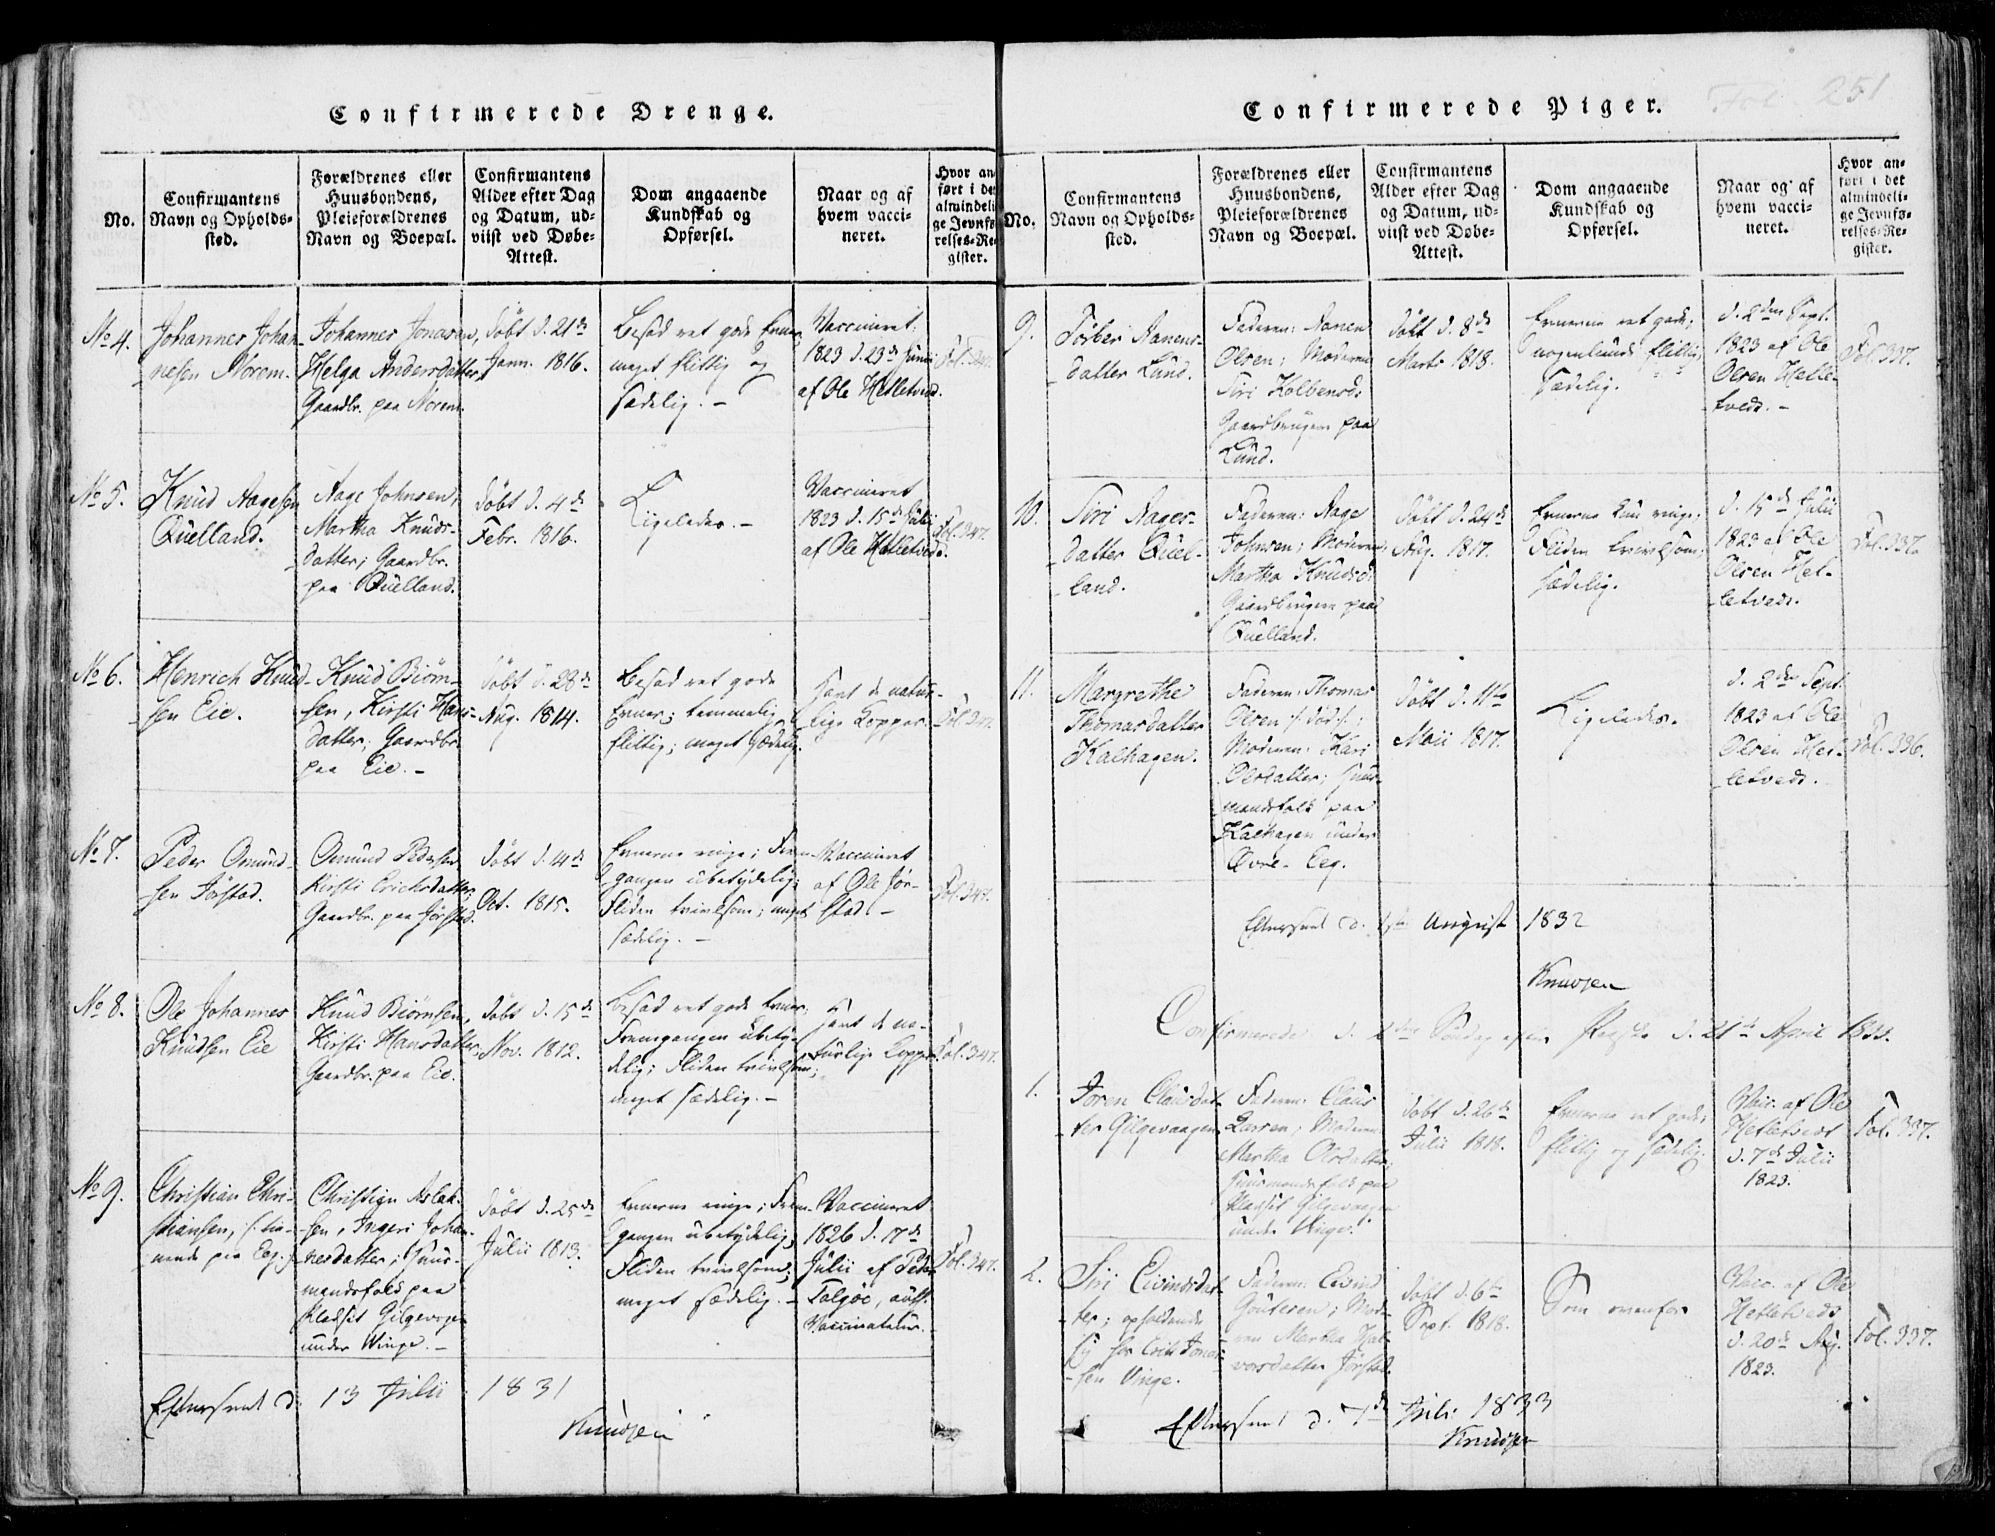 Confirmerede Drenge.
No.
Confirmantens
Navn og Opholds-
sted.
Forældrenes eller
Huusbondens,
Pleieforældrenes
Navn og Boepæl.
Confirmantens
Alder efter Dag
og Datum, ud-
viist ved Døbe-
Attest.
Dom angaaende
Kundskab og
Opførsel.
Naar og af
hvem vacci-
neret.
Hvor an-
ført i det
almindeli-
ge Jevnfø-
relses-Re-
gister.
No 4.
Johannes Johan-
nesen Norem.
Johannes Jonasen,
Helga Andersdatter,
Gaardbr. paa Norem.
Døbt d. 21de
Jann. 1816.
Besad ret gode Evner,
meget flittig og
sædelig. -
Vaccineret
1823 d. 23de Junii
af Ole Hetletved.
No 5.
Knud Aagesen
Quelland.
Aage Johnsen,
Martha Knuds-
datter; Gaardbr.
paa Quelland.
Døbt d. 4de
Febr. 1816.
Ligeledes. -
Vaccineret
1823 d. 15de Julii
af Ole Hetletveds.
Fol. 347.
No 6.
Henrich Knud-
sen Eie.
Knud Biørn-
sen, Kirsti Hans-
datter. Gaardbr.
paa Eie. -
Døbt d. 28de
Aug. 1814.
Besad ret gode
Evner; temmelig
flittig; meget sædelig.
Havt de natur-
lige Kopper.
No 7.
Peder Omund-
sen Jørstad.
Omund Pedersen
Kirsti Erichsdatter;
Gaardbr. paa Jørstad.
Døbt d. 4de
Oct. 1815.
Evnerne ringe; Frem-
gangen ubetydelig;
Fliden tvivlsom; meget
sædelig. -
Vaccineret
af Ole Jør-
stad -
Fol. 347.
No 8.
Ole Johannes
Knudsen Eie
Knud Biørnsen,
Kirsti Hansdatter,
Gaardbr. paa Eie.
Døbt d. 15de
Nov. 1812.
Besad ret gode Evner,
Fremgangen ubety-
delig; Fliden tvivlsom;
meget sædelig. -
Havt de na-
turlige Kopper.
Fol. 347.
No 9.
Christian Chri-
stiansen, /: tie-
nende paa Eeg. :/
Christian Aslak-
sen, Ingeri Johan-
nesdatter; Huus-
mandsfolk paa
Pladset Gilgevogen
under Vinge. -
Døbt d. 25de
Julii 1813.
Evnerne ringe; Frem-
gangen ubetydelig;
Fliden tvivlsom;
meget sædelig. -
Vaccineret
1826 d. 17de
Julii af Peder
Talgøe, autt.
Vaccinateur.
Fol. 347.
Efterseet d. 13 Julii 1831
Knudsen
Confirmerede Piger.
Fol. 251
No.
Confirmantens
Navn og Opholds-
sted.
Forældrenes eller
Huusbondens,
Pleieforældrenes
Navn og Boepæl.
Confirmantens
Alder efter Dag
og Datum, ud-
viist ved Døbe-
Attest.
Dom angaaende
Kundskab og
Opførsel.
Naar og af
hvem vacci-
neret.
Hvor an-
ført i det
almindeli-
ge Jevnfø-
relses-Re-
gister.
9.
Torber Aanens-
datter Lund.
Faderen: Aanen
Olsen; Moderen
Siri Kolbensd:
Gaardbrugere paa
Lund.
Døbt d. 8de
Marts 1818.
Evnerne ret gode;
nogenlunde flittig
sædelig.
d. 2den Sept.
1823 af Ole
Olsen Hetle-
tveds. -
Fol. 337.
10.
Siri Aages-
datter Quel-
land.
Faderen: Aage
Johnsen; Moderen:
Martha Knudsd:
Gaardbrugere paa
Quelland.
Døbt d. 24de
Aug. 1817.
Evnerne kun ringe;
Fliden tvivlsom;
sædelig.
d. 15de Julii
1823 af Ole
Olsen Het-
letveds.
Fol. 337.
11.
Margrethe
Thomasdatter
Kalhagen.
Faderen: Thomas
Olsen /: død :/;
Moderen: Kari
Olsdatter; Huus-
mandsfolk paa
Kalhagen under
Øvre-Eeg.
Døbt d. 11te
Maii 1817.
Ligeledes.
d. 2den Sept.
1823 af Ole
Olsen Het-
letveds.
Fol. 336.
Efterseet d. 1ste August 1832
Knudsen
Confirmerede d. 2den Søndag efter Paaske d. 21de April 1833.
1.
Joren Clausdat-
ter Gilgevaagen
Faderen: Claus
Larsen; Moderen
Martha Olsdatter;
Huusmandsfolk paa
Pladset Gilgevaagen
under Vinge.
Døbt d. 26de
Julii 1818.
Evnerne ret gode;
flittig og sædelig.
Vacc. af Ole
Hetletvedt
d. 7de Julii
1823.
Fol. 337.
2.
Siri Eivindsdat-
ter; opholdende
sig hos Erik Jonas-
sen Vinge.
Faderen: Eivind
Goutesen; Mode-
ren Martha Hal-
vorsdatter Jørstad.
Døbt d. 6te
Sept. 1818.
Som ovenfor
Vacc. af Ole
Hetletveds
d. 20de Aug.
1823.
Fol. 337.
Efterseet d. 7de Julii 1833
Knudsen